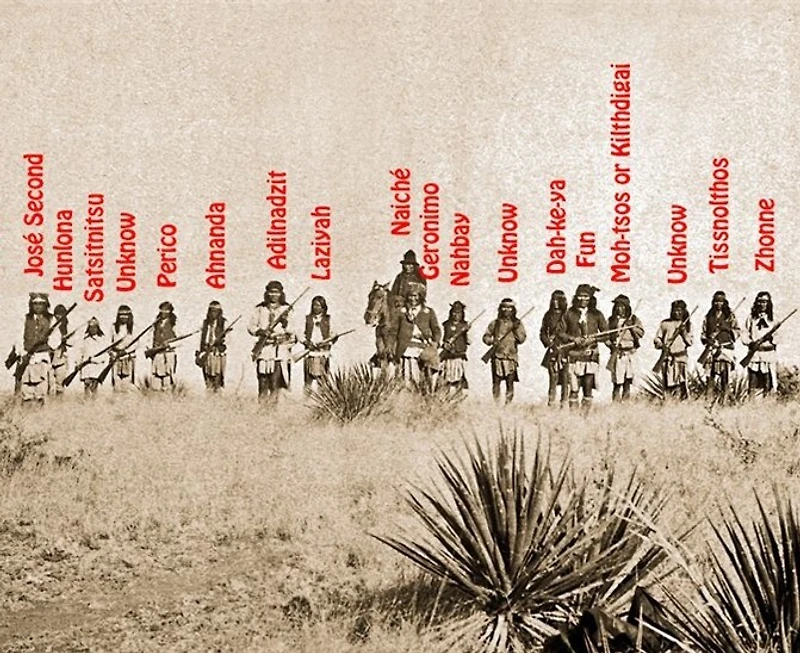 José Second
Hunlona
Satsitnitsu
Unknow
Perico
Ahnanda
Adilnadzit
Laziyah
Naiché
Geronimo
Nahbay
Unknow
Dah-ke-ya
Fun
Moh-tsos or Kilthdigai
Unknow
Tissnolthos
Zhonne